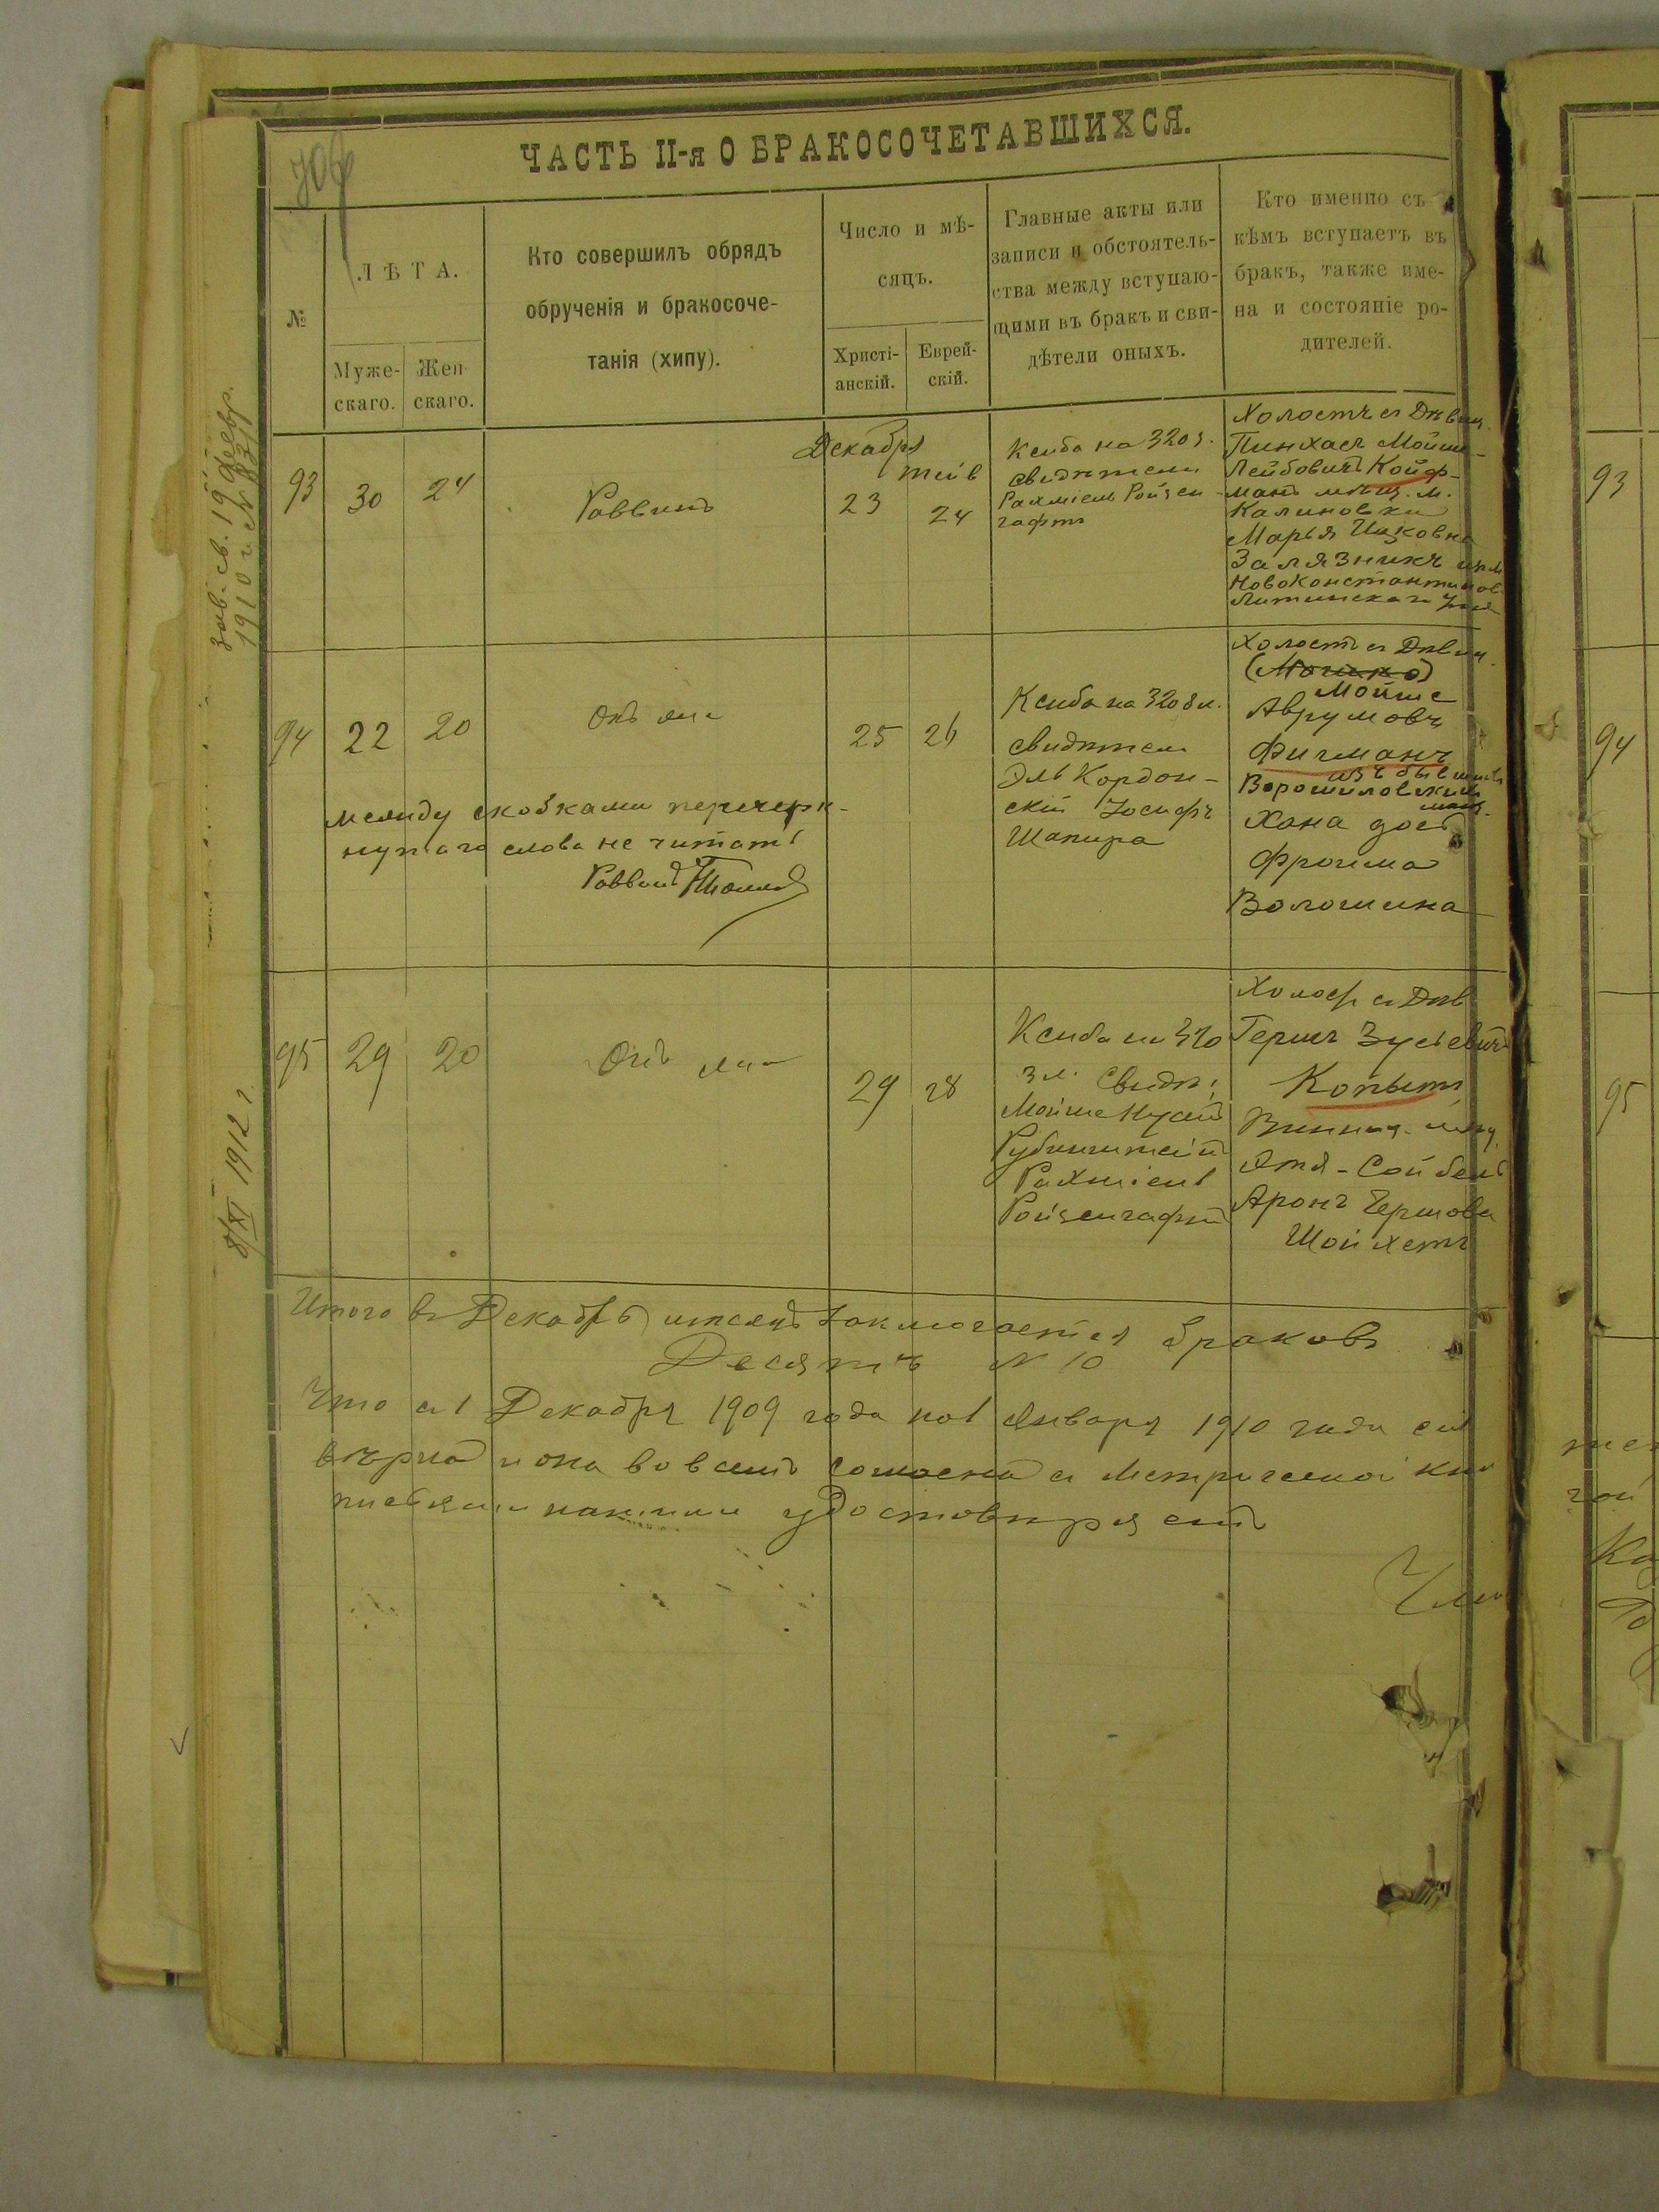 706
ЧАСТЬ II-я О БРАКОСОЧЕТАВШИХСЯ.
№
ЛѢТА.
Муже-
скаго.
Жен
скаго.
Кто совершилъ обрядъ
обрученія и бракосоче-
танія (хипу).
Число и мѣ-
сяцъ.
Христі-
анскій.
Еврей-
скій.
Главные акты или
записи и обстоятель-
ства между вступаю-
щими въ бракъ и сви-
дѣтели оныхъ.
Кто именно съ
кѣмъ вступаетъ въ
бракъ, также име-
на и состояніе ро-
дителей.
св. 19 февр.
1910 г №
8/XI 1912 г.
93
30
24
Раввинъ
Декабря
23
тейв
24
Ксиба на 320 з.
свидѣтели
Рахміель Ройзен
гафтъ
Холостъ съ Дѣвиц.
Пинхасъ Мойше-
Лейбовичъ Койф-
манъ мѣщ. м.
Калиновки
Марья Ицковна
Залязникъ
Новоконстантинов
Литинскаго
94
22
20
Онъ же
25
26
Ксиба на 320 зл.
свидѣтели
Эль Кордон-
скій Іосифъ
Шапира
Холостъ съ Дѣвиц.
Мойше
Аврумовъ
Фигманъ
изъ бывшихъ
Ворошиловскихъ
мѣщ.
Хана доч
Фроима
Волошина
между скобками перечерк-
нутаго слова не читать
Раввинъ
95
29
20
Онъ же
29
28
Ксиба на 320
зл. Свидѣт.
Мойше Нусин
Рубинштейн
Рахміель
Ройзенгафтъ
Холост съ Дѣв
Гершъ Зусьевичъ
Копытъ
Винниц. мѣщ.
Этя-Сойбель
Аронъ Гершова
Шойхетъ
Итого въ Декабрѣ мѣсяцѣ заключается браковъ
Десять № 10
Что съ 1 Декабря 1909 года по 1 Января 1910 года сія
вѣрна и она во всемъ согласна съ Метрической кни
удостовѣряемъ
Чле
93
94
95